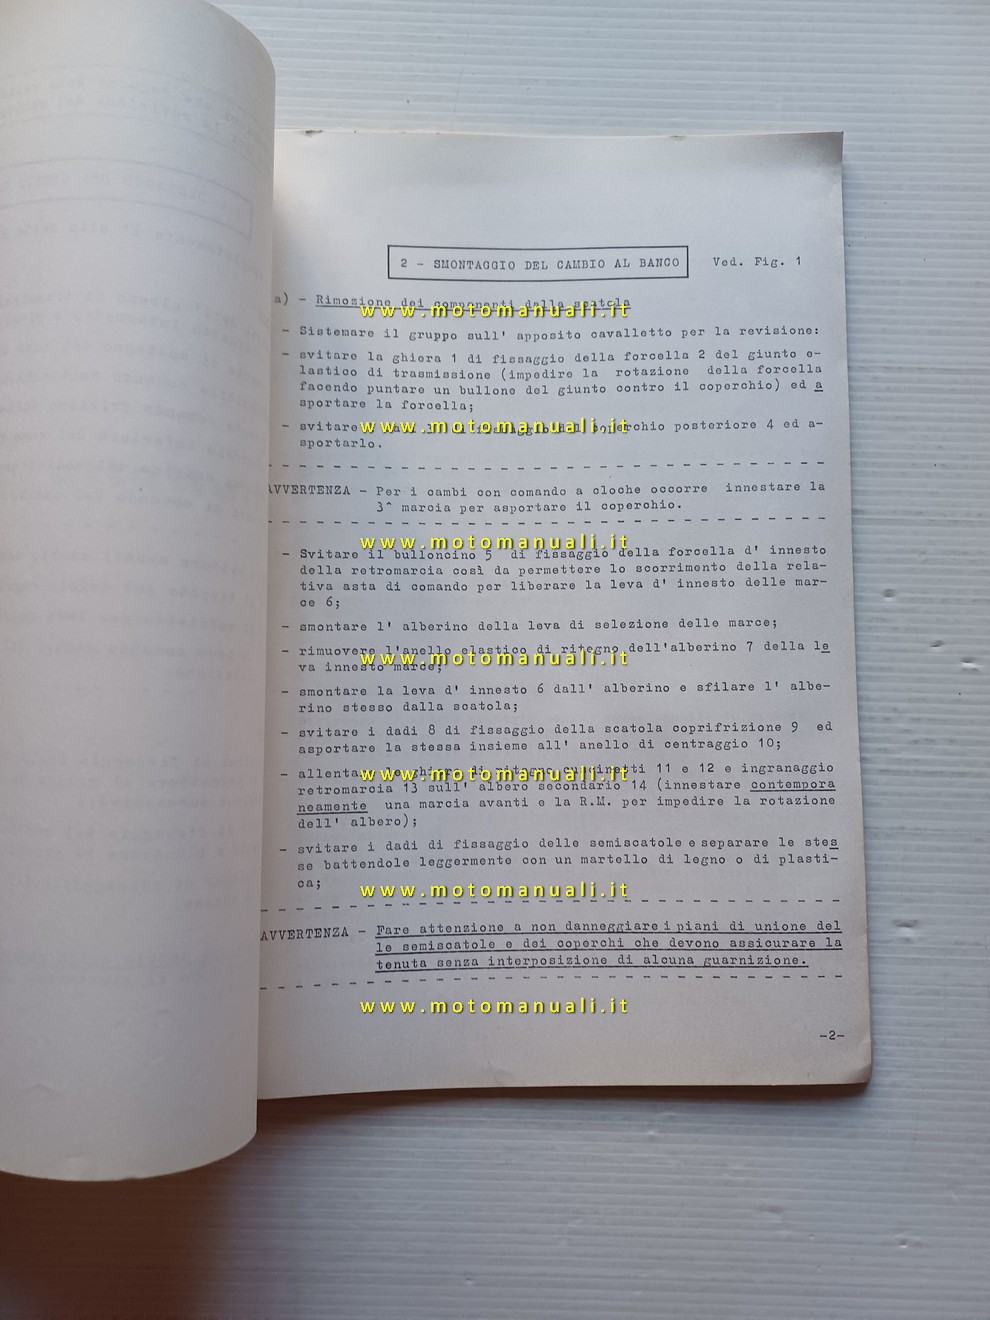 2 - SMONTAGGIO DEL CAMBIO AL BANCO Ved. Fig. 1
a) - Rimozione dei componenti dalla scatola
www.motomanuali.it
- Sistemare il gruppo sull' apposito cavalletto per la revisione:
- svitare la ghiera 1 di fissaggio della forcella 2 del giunto e-
lastico di trasmissione (impedire la rotazione della forcella
facendo puntare un bullone del giunto contro il coperchio) ed a
sportare la forcella;
- svitare di fissaggio del coperchio posteriore 4 ed a-
www.motomanuali.it
sportarlo.
AVVERTENZA - Per i cambi con comando a cloche occorre innestare la
3^ marcia per asportare il coperchio.
www.motomanuali.it
- Svitare il bulloncino 5 di fissaggio della forcella d' innesto
della retromarcia così da permettere lo scorrimento della rela-
tiva asta di comando per liberare la leva d' innesto delle mar-
ce 6;
- smontare l' alberino della leva di selezione delle marce;
- rimuovere l'anello elastico di ritegno dell'alberino 7 della le
www.motomanuali.it
va innesto marce;
- smontare la leva d' innesto 6 dall' alberino e sfilare l' albe-
rino stesso dalla scatola;
- svitare i dadi 8 di fissaggio della scatola coprifrizione 9 ed
asportare la stessa insieme all' anello di centraggio 10;
- allentare di ritegno cuscinetti 11 e 12 e ingranaggio
www.motomanuali.it
retromarcia 13 sull' albero secondario 14 (innestare contempora
neamente una marcia avanti e la R.M. per impedire la rotazione
dell' albero);
- svitare i dadi di fissaggio delle semiscatole e separare le stes
se battendole leggermente con un martello di legno o di plasti-
ca;
www.motomanuali.it
AVVERTENZA - Fare attenzione a non danneggiare i piani di unione del
le semiscatole e dei coperchi che devono assicurare la
tenuta senza interposizione di alcuna guarnizione.
www.motomanuali.it
-2-